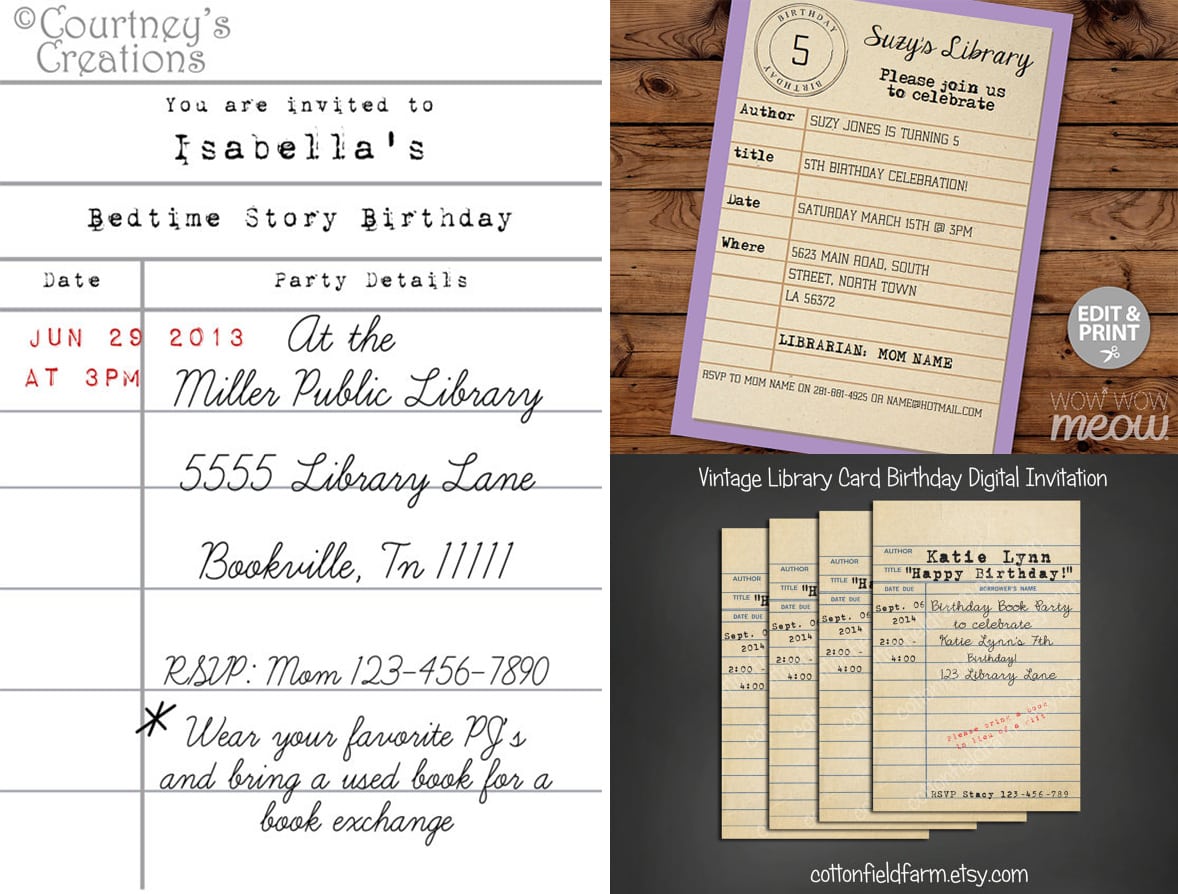 ©Courtney's
Creations
You are invited to
Isabella's
Bedtime Story Birthday
Date
Party Details
JUN 29 2013
AT 3PM
At the
Miller Public Library
5555 Library Lane
Bookville, Tn 11111
RSVP: Mom 123-456-7890
* Wear your favorite PJ's
and bring a used book for a
book exchange
BIRTHDAY
5
BIRTHDAY
Suzy's Library
Please join us
to celebrate
Author
SUZY JONES IS TURNING 5
title
5TH BIRTHDAY CELEBRATION!
Date
SATURDAY MARCH 15TH @ 3PM
Where
5623 MAIN ROAD, SOUTH
STREET, NORTH TOWN
LA 56372
LIBRARIAN: MOM NAME
RSVP TO MOM NAME ON 281-881-4925 OR NAME@HOTMAIL.COM
EDIT &
PRINT
WOW WOW
meow.
Vintage Library Card Birthday Digital Invitation
AUTHOR
TITLE "H
DATE DUE
Sept. 0
2014
2:00 -
4:00
AUTHOR
TITLE "H
DATE DUE
Sept. 06
2014
2:00 -
4:00
AUTHOR
TITLE "Ha
DATE DUE
Sept. 06
2014
2:00 -
4:00
AUTHOR Katie Lynn
TITLE "Happy Birthday!"
DATE DUE BORROWER'S NAME
Sept. 06 Birthday Book Party
2014 to celebrate
2:00 - Katie Lynn's 7th
4:00 Birthday!
123 Library Lane
Please bring a book
in lieu of a gift
RSVP Stacy 123-456-789
cottonfieldfarm.etsy.com